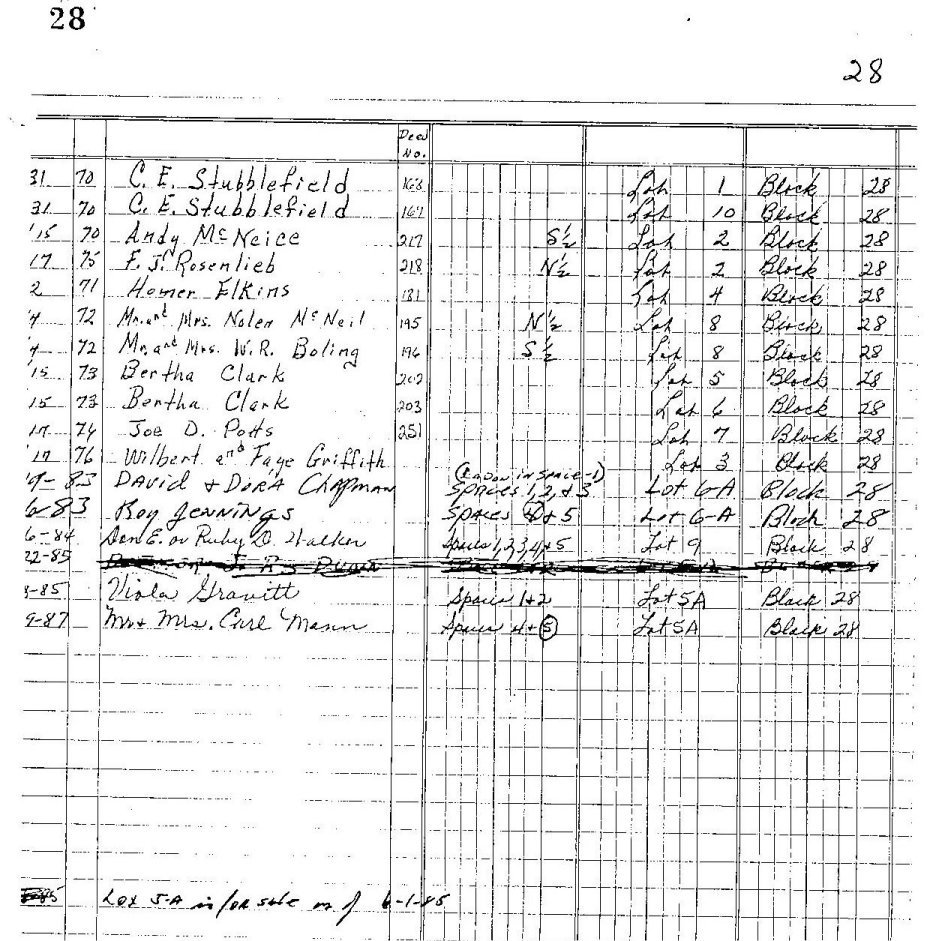 28
28
Deed No.
31 70 C. E. Stubblefield 168 Lot 1 Block 28
31 70 C. E. Stubblefield 169 Lot 10 Block 28
15 70 Andy McNeice 217 S½ Lot 2 Block 28
17 75 F. J. Rosenlieb 218 N½ Lot 2 Block 28
2 71 Homer Elkins 181 Lot 4 Block 28
4 72 Mr. and Mrs. Nolen McNeil 195 N½ Lot 8 Block 28
4 72 Mr. and Mrs. W. R. Boling 196 S½ Lot 8 Block 28
15 73 Bertha Clark 202 Lot 5 Block 28
15 73 Bertha Clark 203 Lot 6 Block 28
17 74 Joe D. Potts 251 Lot 7 Block 28
17 76 Wilbert and Faye Griffith Lot 3 Block 28
in space-1)
9-83 DAVID & DORA CHAPMAN SPACES 1, 2, & 3 LOT 6-A Block 28
6-83 Roy JENNINGS SPACES 4 & 5 Lot 6-A Block 28
6-84 E. or Ruby D. Walker Spaces 1,2,3,4,+5 Lot 9 Block 28
22-85
-85 Viola Gravitt Spaces 1+2 Lot 5A Block 28
9-87 Mr + Mrs. Carl Mann Spaces 4+5 Lot 5A Block 28
Lot 5-A is for sale as of 6-1-85